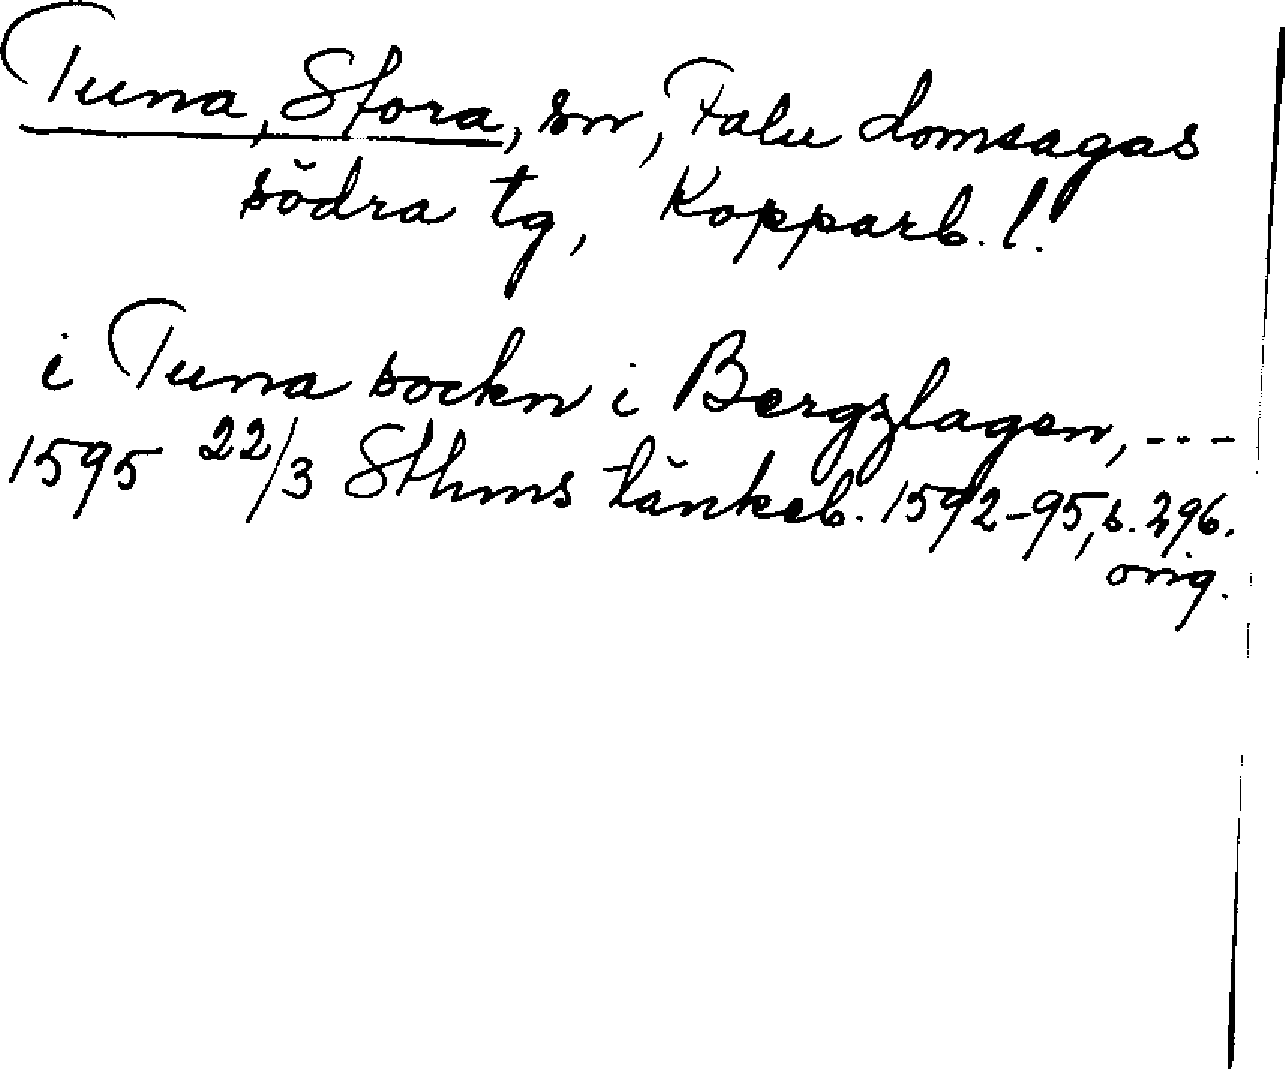 Tuna, Stora, sn, Falu domsagas
södra tg, Kopparb. l.
i Tuna sockn i Bergzlagen, ---
1595 22/3 Sthms tänkeb. 1592-95, s. 296.
orig.